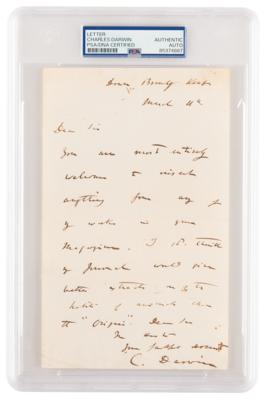 LETTER
CHARLES DARWIN
PSA/DNA CERTIFIED
AUTHENTIC
AUTO
PSA
Down Kent
March
Dear Sir
You are most entirely
welcome to
anything from any
of my works in your
Magazine. I think
my Journal would give
better extracts
habits of animals than
the "Origin". Dear Sir
Yours faithfully
C. Darwin